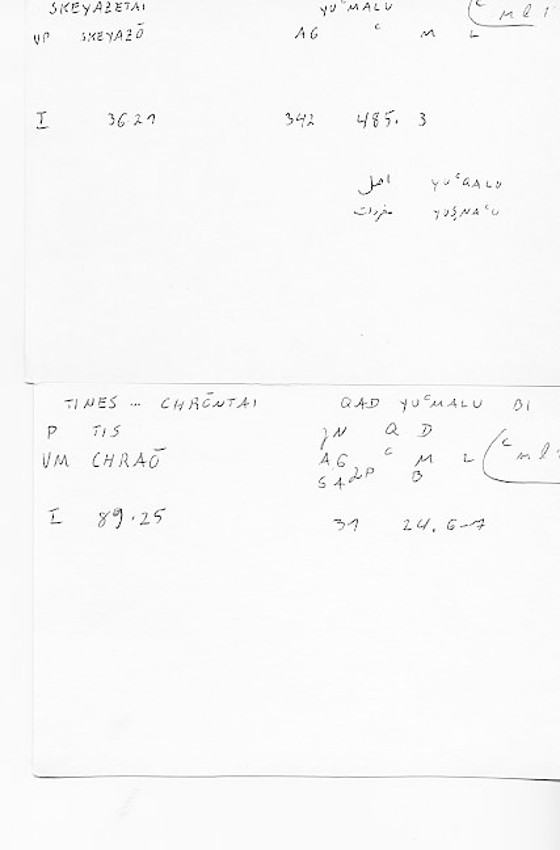 SKEYAZETAI YUᶜMALU
VP SKEYAZŌ AG ᶜ M L (ᶜml1
I 3621 342 485. 3
اصل YUᶜQALU
مفردات YUṢNAᶜU
TINES — CHRŌNTAI QAD YUᶜMALU BI
P TIS JN Q D
VM CHRAŌ AG ᶜ M L (ᶜml1
SA2P B
I 89.25 31 24. 6-7